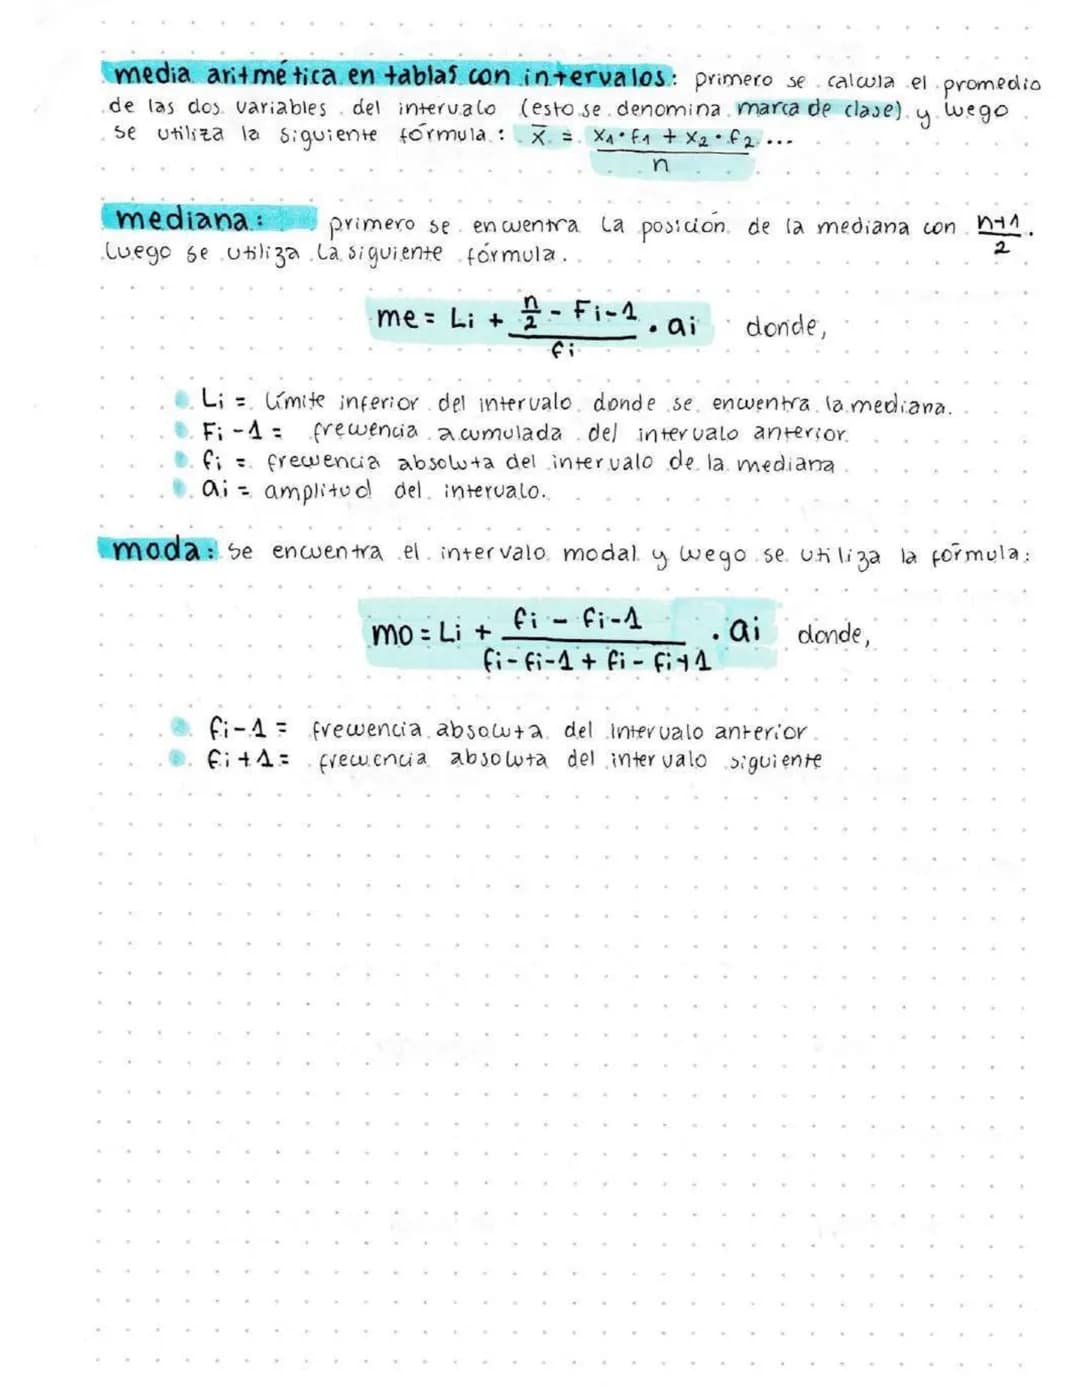 media aritmética en tablas con intervalos: primero se calcula el promedio
de las dos variables del intervalo (esto se denomina marca de clase) y luego
se utiliza la siguiente fórmula: x̄ = (x₁·f₁ + x₂·f₂...)/n
mediana: primero se encuentra la posición de la mediana con (n+1)/2.
Luego se utiliza la siguiente fórmula.
me = Li + (n/2 - Fi-1)/fi · ai donde,
Li = límite inferior del intervalo donde se encuentra la mediana.
Fi-1 = frecuencia acumulada del intervalo anterior.
fi = frecuencia absoluta del intervalo de la mediana
ai = amplitud del intervalo.
moda: se encuentra el intervalo modal y luego se utiliza la fórmula:
mo = Li + (fi - fi-1)/(fi-fi-1 + fi-fi+1) · ai donde,
fi-1 = frecuencia absoluta del intervalo anterior
fi+1 = frecuencia absoluta del intervalo siguiente